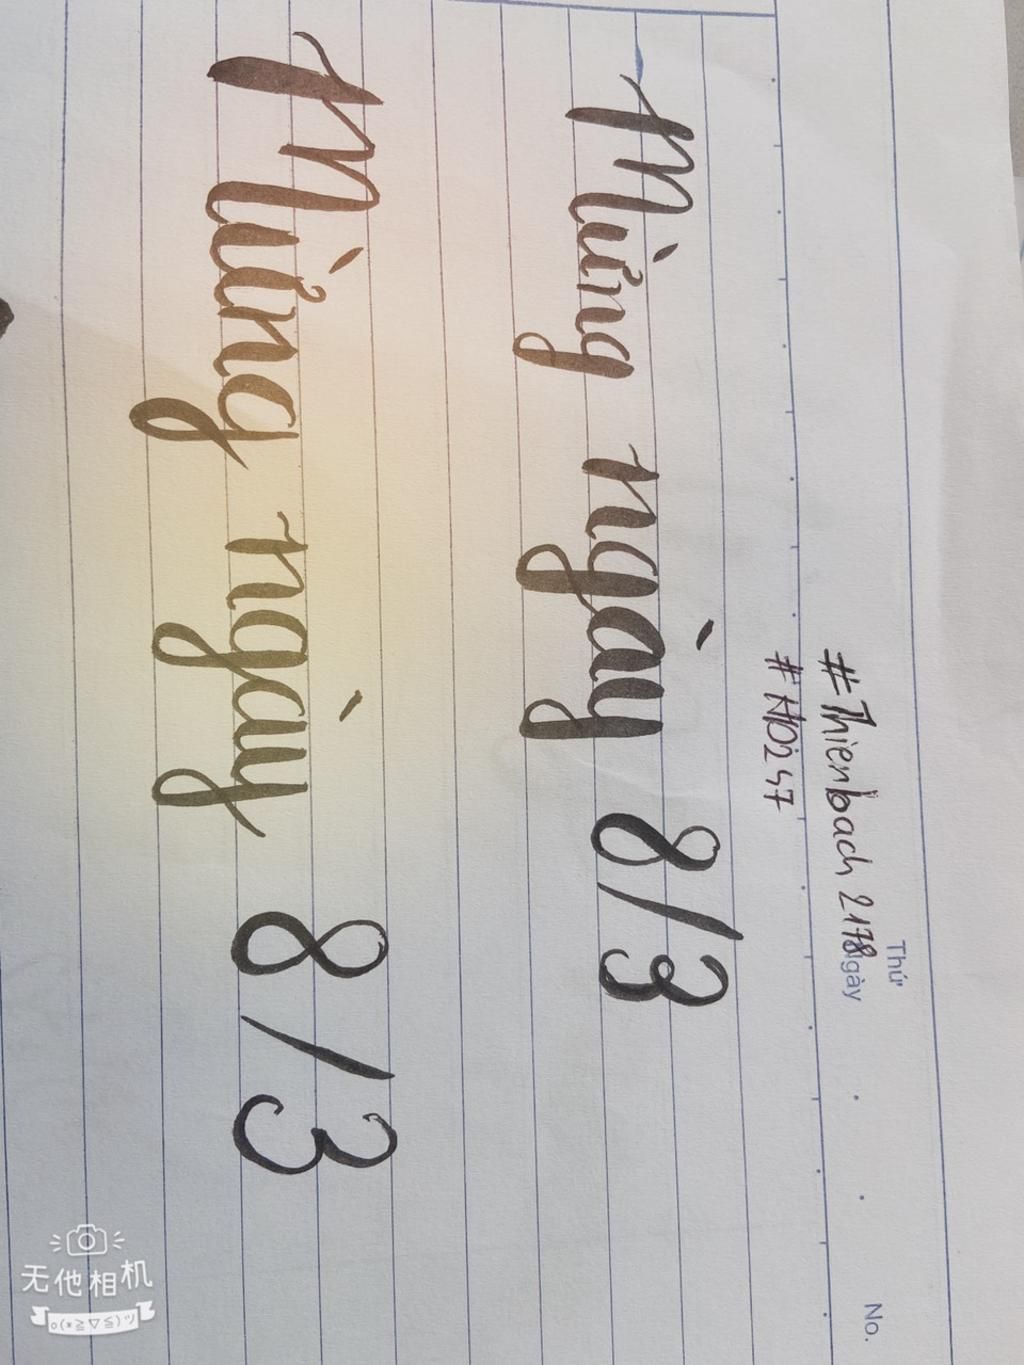 Thứ
Ngày
No.
#Thienbach 2178
#MD247
Mừng ngày 8/3
Mừng ngày 8/3
无他相机